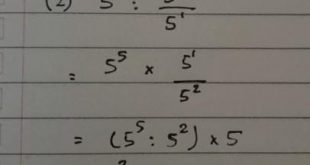 (2) 5⁵ : 5²/5¹
= 5⁵ × 5¹/5²
= (5⁵ : 5²) × 5